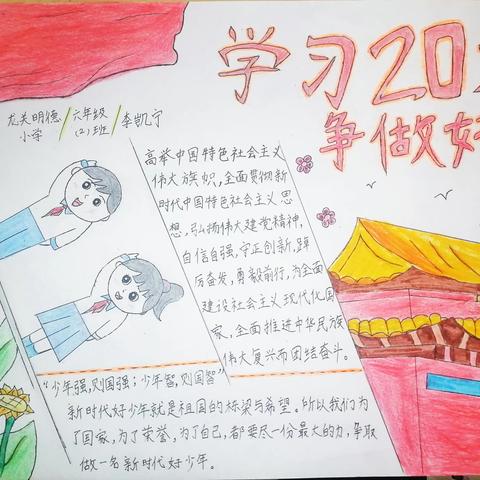 学习20
争做好
龙关明德 / 六年级 / 李凯宁
小学 (2)班
高举中国特色社会主义
伟大旗帜,全面贯彻新
时代中国特色社会主义思
想,弘扬伟大建党精神,
自信自强,守正创新,踔
厉奋发,勇毅前行,为全面
建设社会主义现代化国
家,全面推进中华民族
伟大复兴而团结奋斗。
“少年强,则国强;少年智,则国智”
新时代好少年就是祖国的栋梁与希望。所以我们为
了国家,为了荣誉,为了自己,都要尽一份最大的力,争取
做一名新时代好少年。